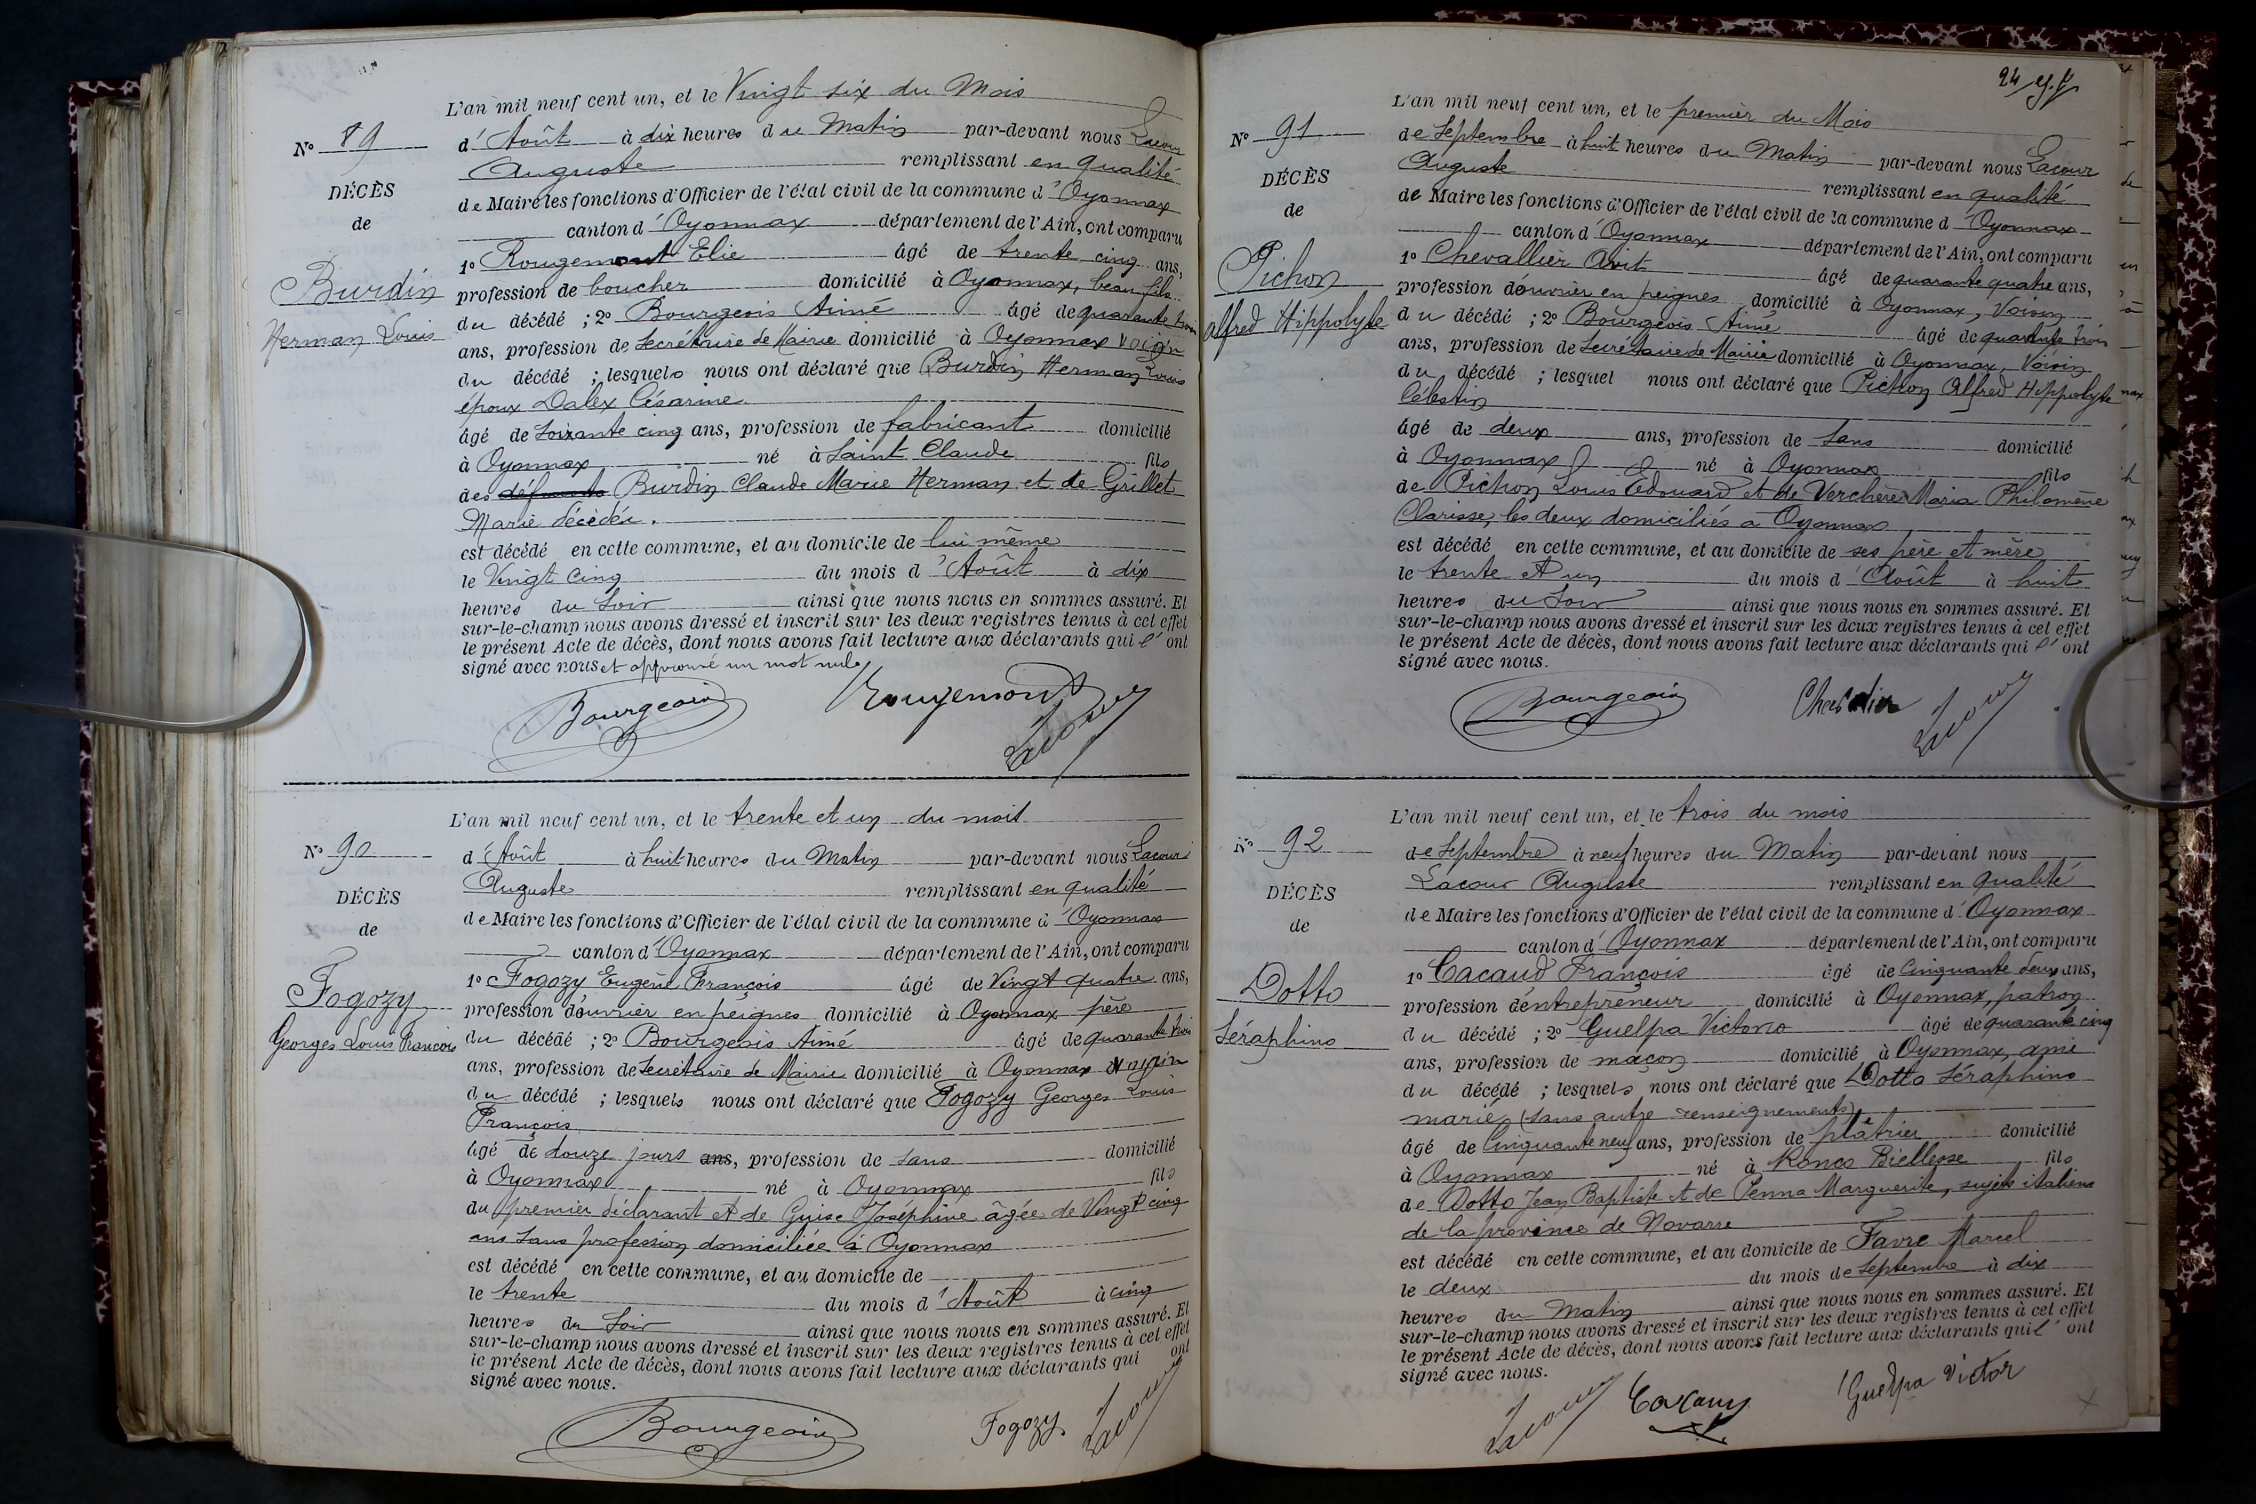 L'an mil neuf cent un, et le Vingt six du Mois
N° 89
d'Août à dix heures du Matin par-devant nous Lacour
Auguste remplissant en qualité
DÉCÈS
de Maire les fonctions d'Officier de l'état civil de la commune d'Oyonnax
de
canton d'Oyonnax département de l'Ain, ont comparu
1° Rougemont Elie âgé de trente cinq ans,
Burdin
profession de boucher domicilié à Oyonnax, beau fils
du décédé ; 2° Bourgeois Aimé âgé de quarante trois
Herman Louis
ans, profession de Secrétaire de Mairie domicilié à Oyonnax voisin
du décédé ; lesquels nous ont déclaré que Burdin Herman Louis
époux Dalex Césarine
âgé de soixante cinq ans, profession de fabricant domicilié
à Oyonnax né à Saint Claude fils
des défunts Burdin Claude Marie Herman et de Grillet
Marie décédés.
est décédé en cette commune, et au domicile de lui même
le Vingt cinq du mois d'Août à dix
heures du Soir ainsi que nous nous en sommes assuré. Et
sur-le-champ nous avons dressé et inscrit sur les deux registres tenus à cet effet
le présent Acte de décès, dont nous avons fait lecture aux déclarants qui l'ont
signé avec nous et approuvé un mot nul.
Bourgeois Rougemont Lacour
L'an mil neuf cent un, et le trente et un du mois
N° 90
d'Août à huit heures du Matin par-devant nous Lacour
Auguste remplissant en qualité
DÉCÈS
de Maire les fonctions d'Officier de l'état civil de la commune d'Oyonnax
de
canton d'Oyonnax département de l'Ain, ont comparu
1° Fogozy Eugène François âgé de Vingt quatre ans,
Fogozy
profession d'ouvrier en peignes domicilié à Oyonnax père
Georges Louis François
du décédé ; 2° Bourgeois Aimé âgé de quarante trois
ans, profession de Secrétaire de Mairie domicilié à Oyonnax voisin
du décédé ; lesquels nous ont déclaré que Fogozy Georges Louis
François
âgé de douze jours ans, profession de sans domicilié
à Oyonnax né à Oyonnax fils
du premier déclarant et de Guise Joséphine âgée de Vingt cinq
ans sans profession domiciliée à Oyonnax
est décédé en cette commune, et au domicile de
le trente du mois d'Août à cinq
heures du Soir ainsi que nous nous en sommes assuré. Et
sur-le-champ nous avons dressé et inscrit sur les deux registres tenus à cet effet
le présent Acte de décès, dont nous avons fait lecture aux déclarants qui ont
signé avec nous.
Bourgeois Fogozy Lacour
24
L'an mil neuf cent un, et le premier du Mois
N° 91
de Septembre à huit heures du Matin par-devant nous Lacour
Auguste remplissant en qualité
DÉCÈS
de Maire les fonctions d'Officier de l'état civil de la commune d'Oyonnax
de
canton d'Oyonnax département de l'Ain, ont comparu
1° Chevallier Avit âgé de quarante quatre ans,
Pichon
profession d'ouvrier en peignes domicilié à Oyonnax, Voisin
Alfred Hippolyte
du décédé ; 2° Bourgeois Aimé âgé de quarante trois
ans, profession de Secrétaire de Mairie domicilié à Oyonnax, Voisin
du décédé ; lesquel nous ont déclaré que Pichon Alfred Hippolyte
Célestin
âgé de deux ans, profession de sans domicilié
à Oyonnax né à Oyonnax fils
de Pichon Louis Edouard et de Verchère Maria Philomène
Clarisse, les deux domiciliés à Oyonnax
est décédé en cette commune, et au domicile de ses père et mère
le trente et un du mois d'Août à huit
heures du Soir ainsi que nous nous en sommes assuré. Et
sur-le-champ nous avons dressé et inscrit sur les deux registres tenus à cet effet
le présent Acte de décès, dont nous avons fait lecture aux déclarants qui l'ont
signé avec nous.
Bourgeois Lacour
L'an mil neuf cent un, et le trois du mois
N° 92
de Septembre à neuf heures du Matin par-devant nous
Lacour Auguste remplissant en qualité
DÉCÈS
de Maire les fonctions d'Officier de l'état civil de la commune d'Oyonnax
de
canton d'Oyonnax département de l'Ain, ont comparu
1° Cacaud François âgé de Cinquante deux ans,
Dotto
profession d'entrepreneur domicilié à Oyonnax, patron
Séraphino
du décédé ; 2° Guelpa Victorio âgé de quarante cinq
ans, profession de maçon domicilié à Oyonnax, ami
du décédé ; lesquels nous ont déclaré que Dotto Séraphino
marié, (sans autre renseignements)
âgé de Cinquante neuf ans, profession de plâtrier domicilié
à Oyonnax né à Ronco Biellese fils
de Dotto Jean Baptiste et de Penna Marguerite, sujets italiens
de la province de Novarre
est décédé en cette commune, et au domicile de Favre Marcel
le deux du mois de Septembre à dix
heures du Matin ainsi que nous nous en sommes assuré. Et
sur-le-champ nous avons dressé et inscrit sur les deux registres tenus à cet effet
le présent Acte de décès, dont nous avons fait lecture aux déclarants qui l'ont
signé avec nous.
Lacour Guelpa Victor